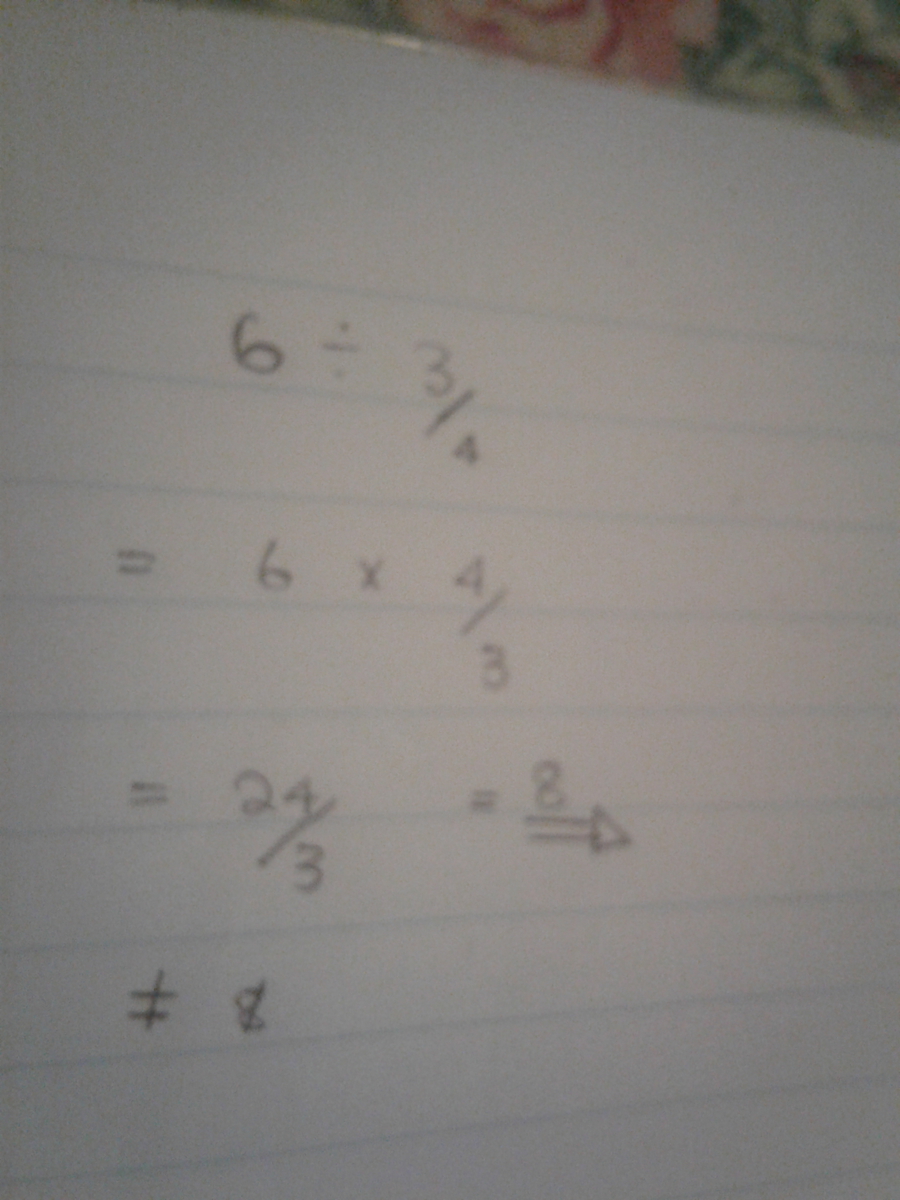 6 ÷ 3/4
= 6 x 4/3
= 24/3 = 8
≠ 8